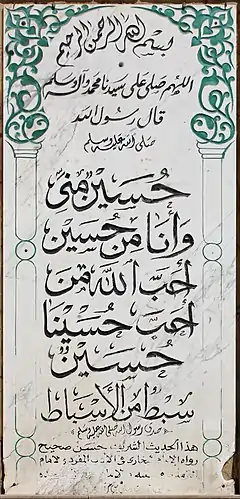 بسم الله الرحمن الرحيم
اللهم صلي على سيدنا محمد وآله وسلم
قال رسول الله
صلى الله عليه وسلم
حسين مني
وأنا من حسين
أحب الله من
أحب حسينا
حسين
سبط من الأسباط
صدق رسول الله صلى الله عليه وسلم
هذا الحديث الشريف حسن صحيح
رواه الإمام البخاري في الأدب المفرد والإمام